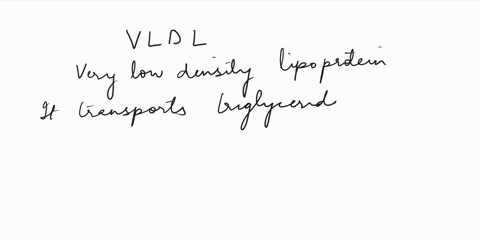 VLDL
Very low density lipoprotein
It transports triglycerid